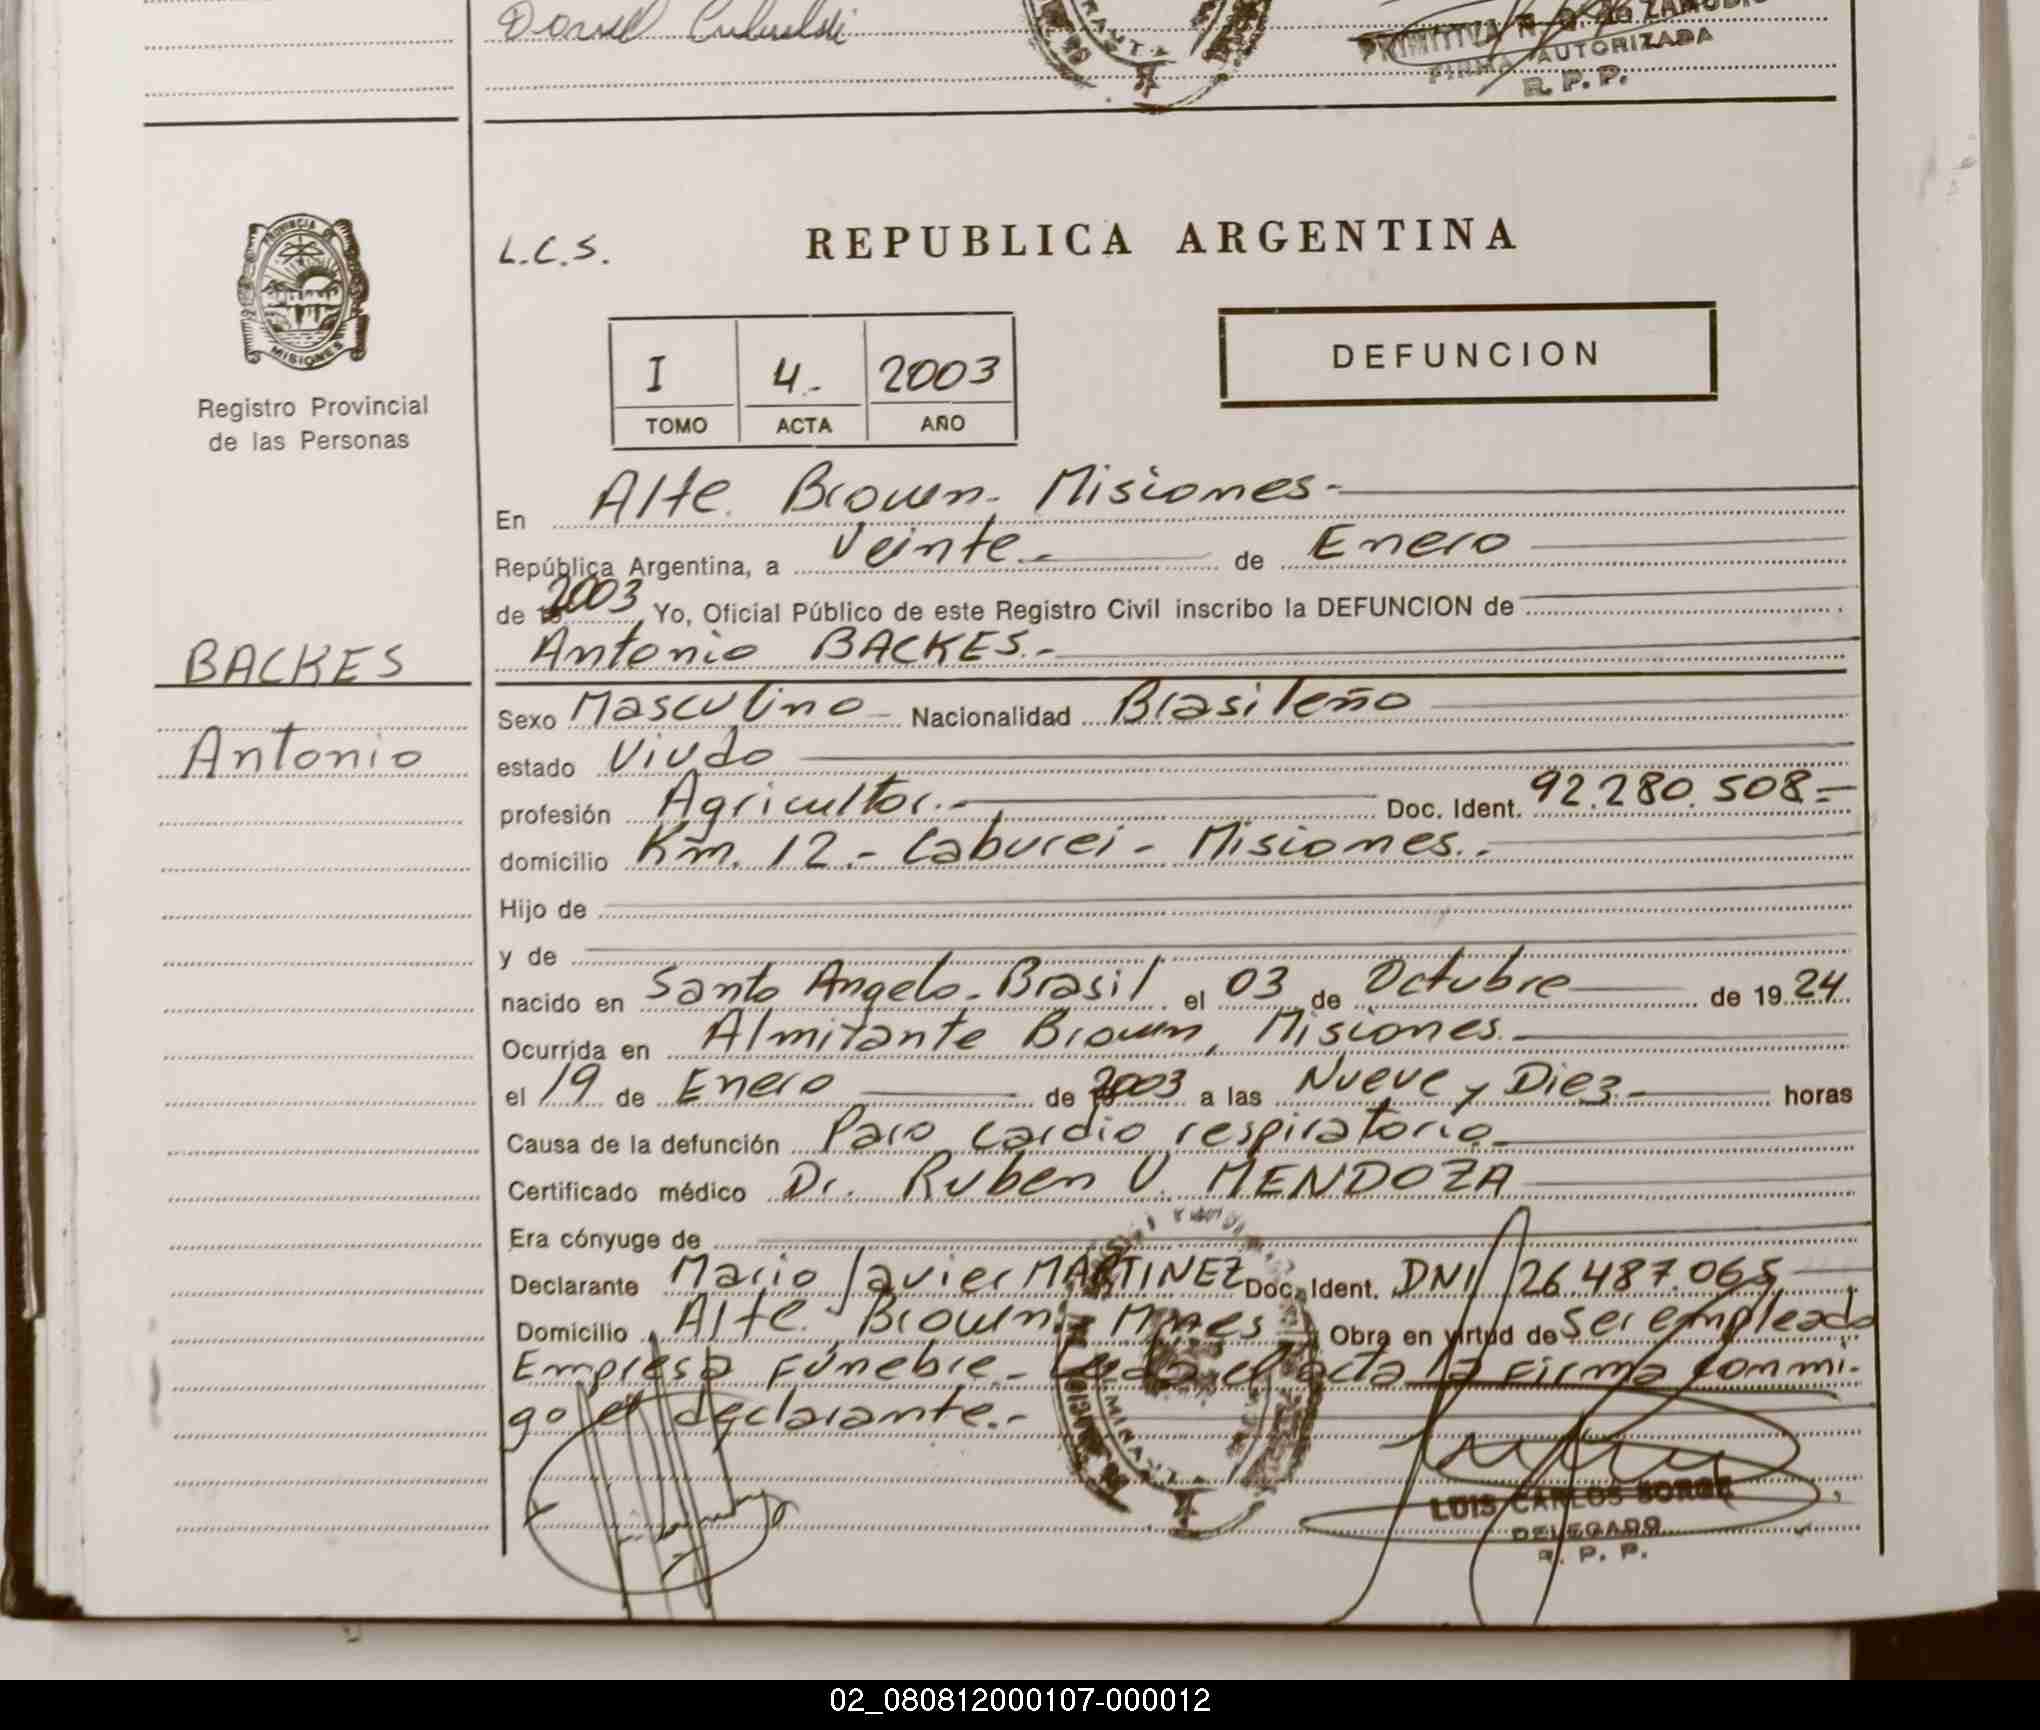 AUTORIZADA
R. P. P.
PROVINCIA D
MISIONES
Registro Provincial
de las Personas
BACKES
Antonio
L.C.S.
REPUBLICA ARGENTINA
I 4.- 2003
TOMO ACTA AÑO
DEFUNCION
En Alte. Brown. Misiones.-
República Argentina, a Veinte.- de Enero
de 2003 Yo, Oficial Público de este Registro Civil inscribo la DEFUNCION de
Antonio BACKES.-
Sexo Masculino Nacionalidad Brasileño
estado Viudo
profesión Agricultor.- Doc. Ident. 92.280.508=
domicilio Km. 12.- Caburei - Misiones.-
Hijo de
y de
nacido en Santo Angelo-Brasil el 03 de Octubre de 19 24
Ocurrida en Almirante Brown, Misiones.
el 19 de Enero de 2003 a las Nueve y Diez.- horas
Causa de la defunción Paro cardio respiratorio.
Certificado médico Dr. Ruben V. MENDOZA
Era cónyuge de
Declarante Mario Javier MARTINEZ Doc. Ident. DNI 26.487.065
Domicilio Alte. Brown - Mnes Obra en virtud de ser empleado
Empresa Fúnebre.- Leída el acta la firma conmi-
go el declarante.-
LUIS CARLOS SORGE
DELEGADO
R. P. P.
02_080812000107-000012